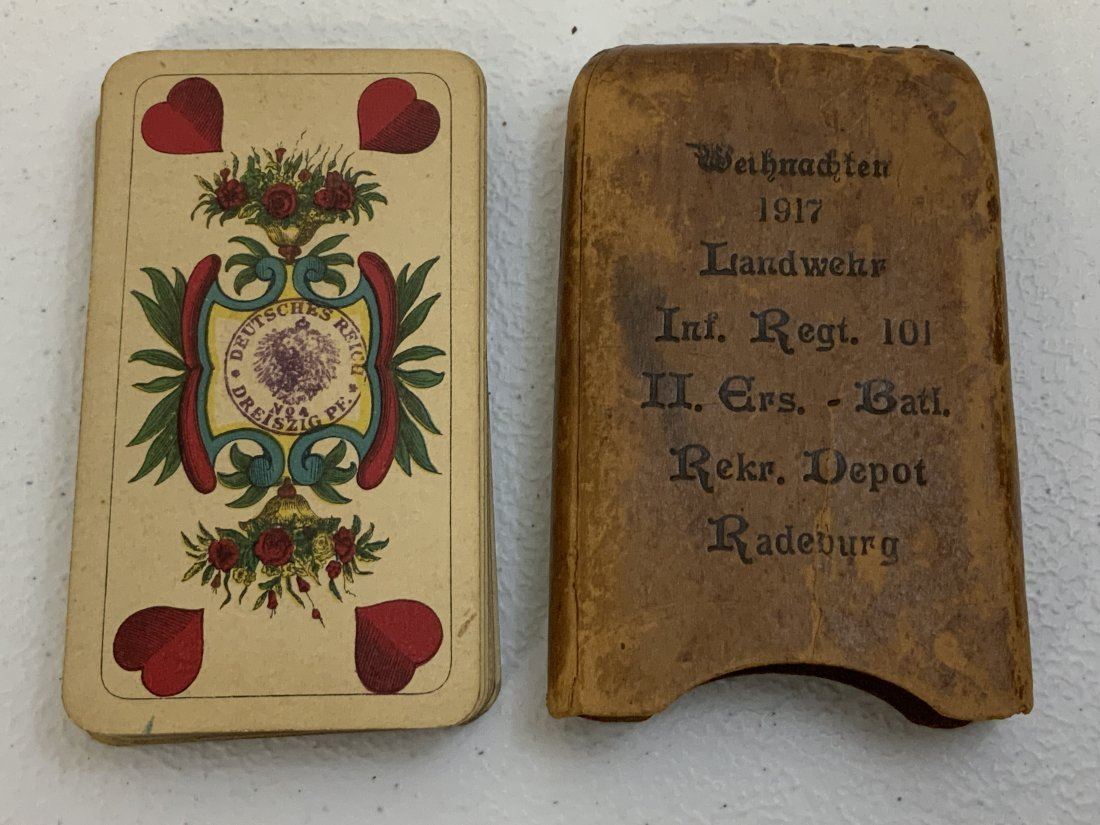 DEUTSCHES REICH
No 4
* DREISZIG PF. *
Weihnachten
1917
Landwehr
Inf. Regt. 101
II. Ers. - Batl.
Rekr. Depot
Radeburg